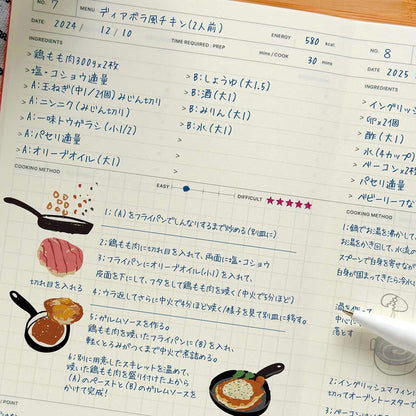 No. 7
MENU ディアボラ風チキン(2人前)
DATE 2024 / 12 / 10
TIME REQUIRED : PREP
mins / COOK 30 mins
ENERGY 580 kcal
INGREDIENTS
> 鶏もも肉300g×2枚
> 塩・コショウ適量
> A:玉ねぎ(中1/2個)みじん切り
> A:ニンニク(みじん切り)
> A:一味トウガラシ(小1/2)
> A:パセリ適量
> A:オリーブオイル(大1)
> B:しょうゆ(大1.5)
> B:酒(大1)
> B:みりん(大1)
> B:水(大1)
>
>
>
COOKING METHOD
EASY
DIFFICULT ★★★★★
1:(A)をフライパンでしんなりするまで炒める(別皿に)
2:鶏もも肉に切れ目を入れて、両面に塩・コショウ
3:フライパンにオリーブオイル(小1)を入れて、
皮面を下にして、フタをして鶏もも肉を焼く(中火で5分ほど)
4:ウラ返してさらに中火で4分ほど焼く/様子を見て別皿に移す。
切れ目を入れる
5:ガルムソースを作る。
鶏もも肉を焼いたフライパンに(B)を入れ、
軽くとろみがつくまで中火で煮詰める。
6:別に用意したスキレットを温めて、
焼いた鶏もも肉を盛り付けた上から
(A)のペーストと(B)のガルムソースを
かけて完成!
POINT
No. 8
DATE 2025
INGREDIENTS
> イングリッシ
> 卵×2個
> 酢(大1)
> 水(4カップ)
> ベーコン×2枚
> パセリ適量
> ベビーリーフな
COOKING METHOD
1:鍋でお湯を沸かして、
お湯がわき回して、水流の
スプーンで白身を寄せなが
白身が固まってきたら冷水に
中心に
落とす
2:イングリッシュマフィン
切ってオーブントースターで